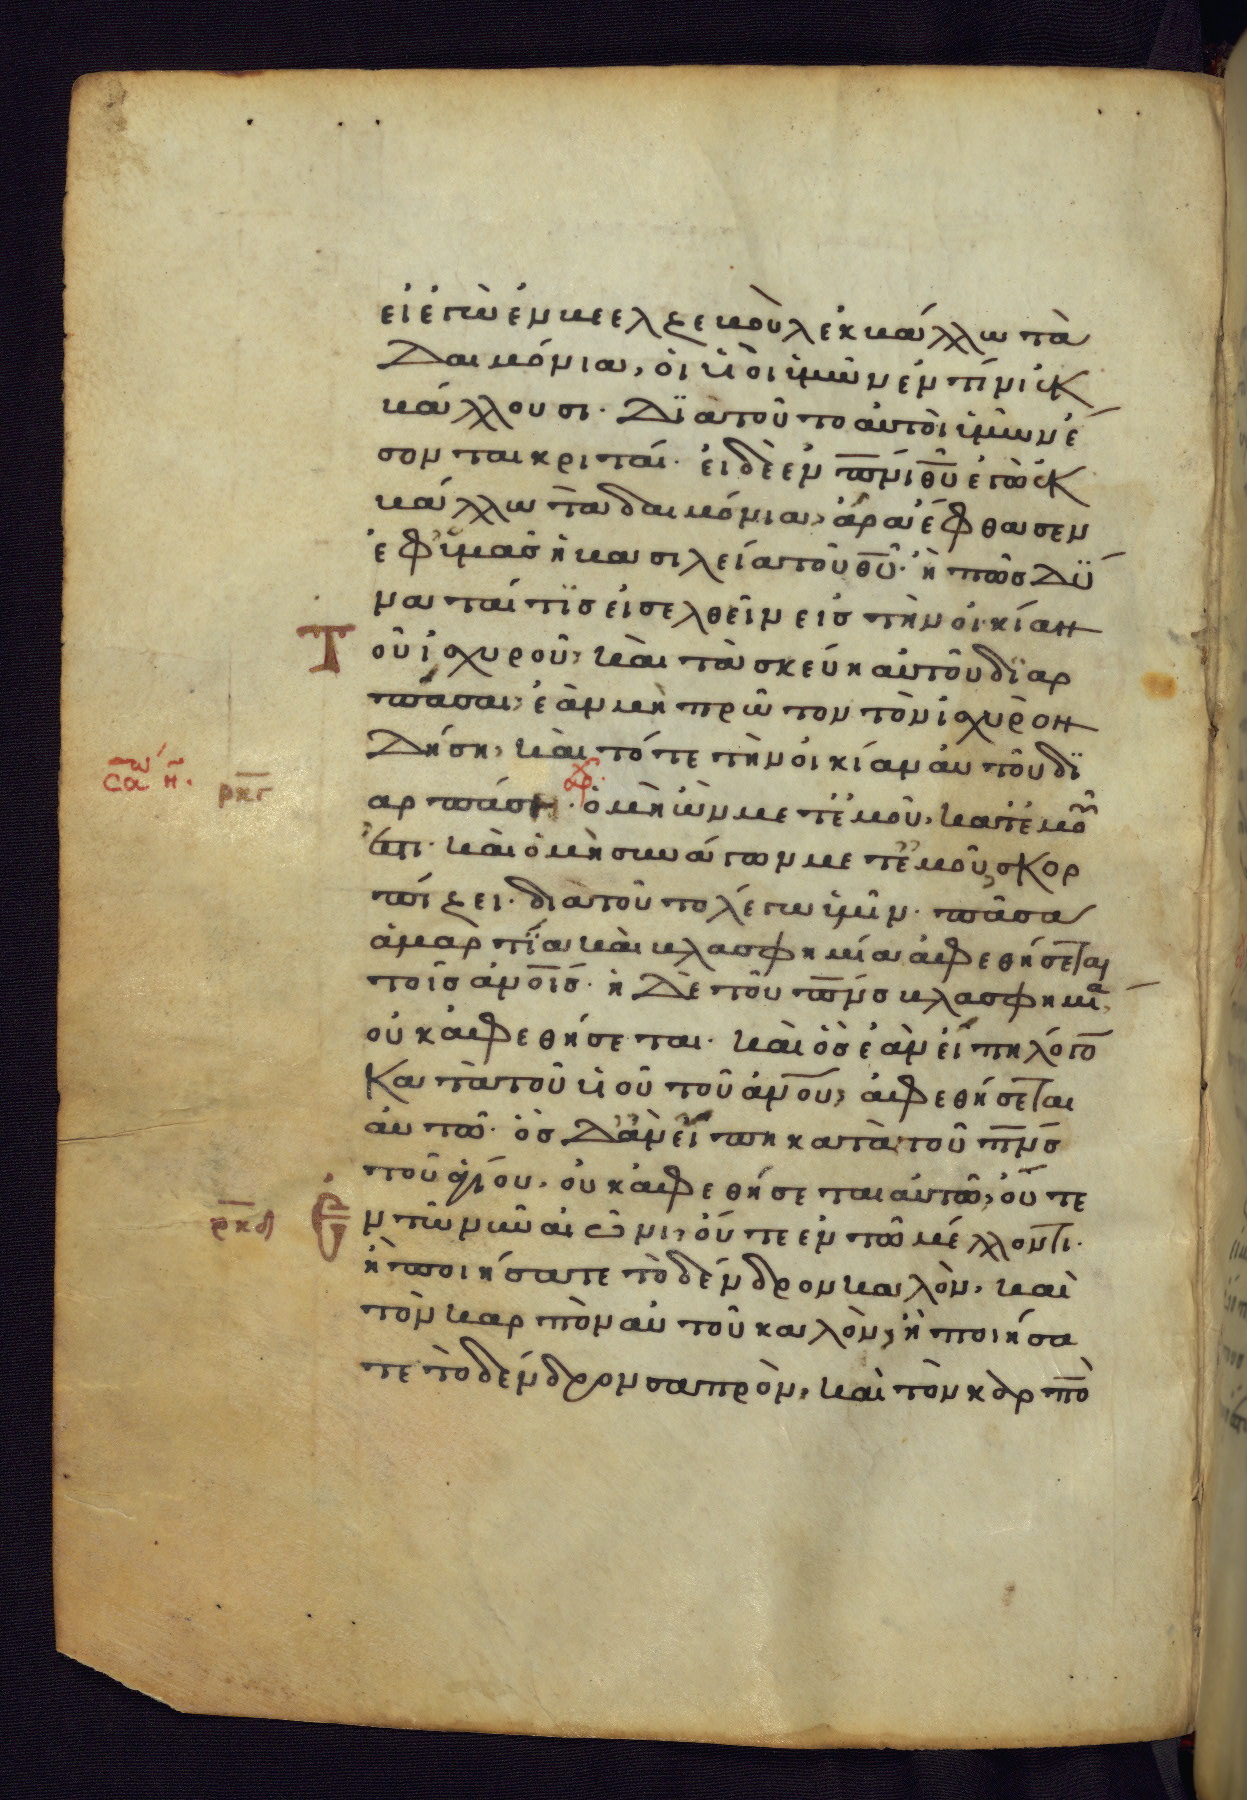 εἰ ἐγὼ ἐν βεελζεβοὺλ ἐκβάλλω τὰ
δαιμόνια, οἱ ὑιοὶ ὑμῶν ἐν τίνι ἐκ
βάλλουσι· διὰ τοῦτο αὐτοὶ ὑμῶν ἔ
σονται κριταί· εἰ δὲ ἐν π̅ν̅ι̅ θ̅υ̅ ἐγὼ ἐκ
βάλλω τὰ δαιμόνια, ἄρα ἔφθασεν
ἐφ' ὑμᾶς ἡ βασιλεία τοῦ θ̅υ̅· ἢ πῶς δύ
ναταί τϊς εἰσελθεῖν εἰς τὴν οἰκίαν
Τοῦ ἰσχυροῦ, καὶ τὰ σκεύη αὐτοῦ διαρ
πάσαι, ἐὰν μὴ πρῶτον τὸν ἰσχυρὸν
δήση, καὶ τότε τὴν οἰκίαν αὐτοῦ δϊ
σα̅ω̅ η̅· ρ̅κ̅γ̅ αρπάση· ἀρχ ὁ μὴ ὢν μετ' ἐμοῦ, κατ' ἐμοῦ
ἐστι· καὶ ὁ μὴ συνάγων μετ' ἐμοῦ, σκορ
πίζει· διὰ τοῦτο λέγω ὑμῖν· πᾶσα
ἁμαρτΐα καὶ βλασφημία ἀφεθήσεται
τοῖς ἀ̅ν̅ο̅ι̅ς̅· ἡ δὲ τοῦ π̅ν̅ς̅ βλασφημία,
οὐκ ἀφεθήσεται· καὶ ὃς ἐὰν εἴπη λόγο̅
κατὰ τοῦ ὑιοῦ τοῦ ἀ̅ν̅ο̅υ̅, ἀφεθήσεται
αὐτῶ· ὃς δ' ἂν εἴπη κατὰ τοῦ π̅ν̅ς̅
τοῦ ἁγίου, οὐκ ἀφεθήσεται αὐτῶ, οὔτε
ρ̅κ̅δ̅ Ἐν τῶ νῦν αἰῶνι, οὔτε ἐν τῶ μέλλοντι·
ἢ ποιήσατε τὸ δένδρον καλὸν, καὶ
τὸν καρπὸν αὐτοῦ καλὸν, ἢ ποιήσα
τε τὸ δένδρον σαπρὸν, καὶ τὸν καρπὸ̅